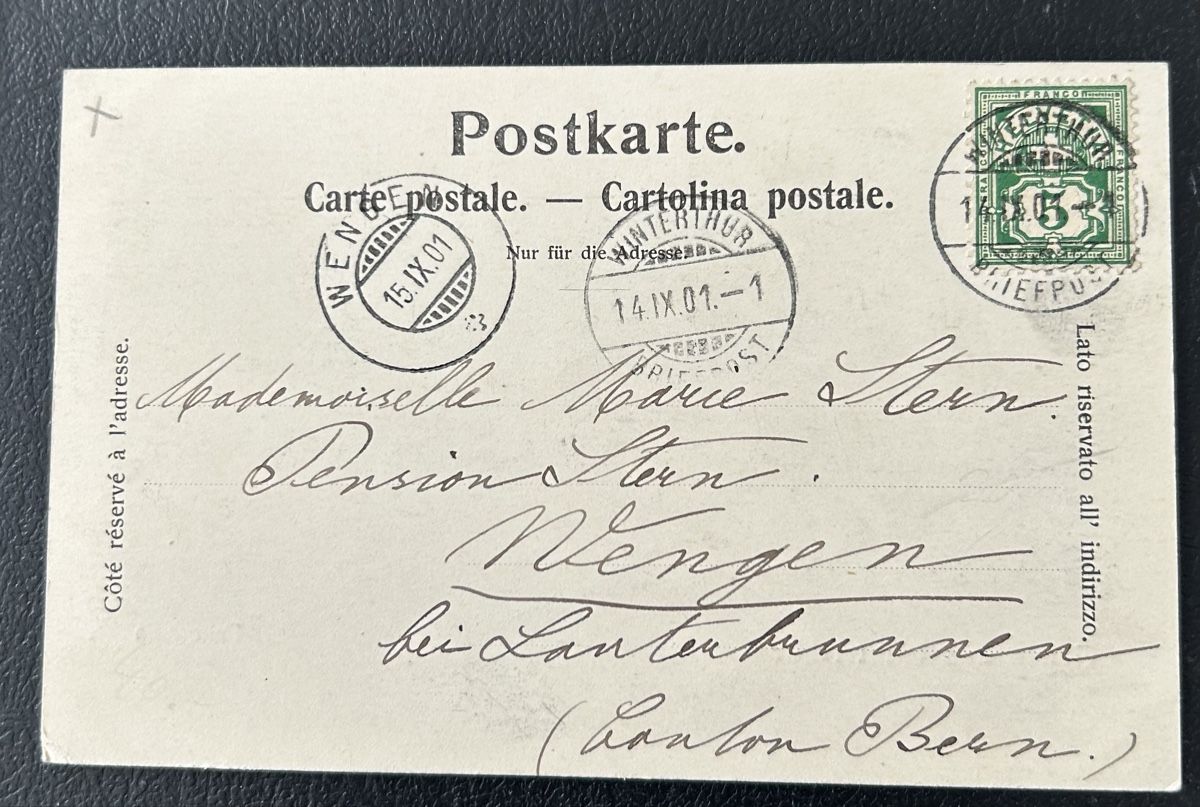 Postkarte.
Carte postale. — Cartolina postale.
Nur für die Adresse.
FRANCO
FRANCO
FRANCO
5
WINTERTHUR
14.IX.01.-1
BRIEFPOST
WENGEN
15.IX.01
WINTERTHUR
14.IX.01.-1
BRIEFPOST
Côté réservé à l'adresse.
Lato riservato all' indirizzo.
Mademoiselle Marie Stern.
Pension Stern.
Wengen
bei Lauterbrunnen
(Canton Bern.)